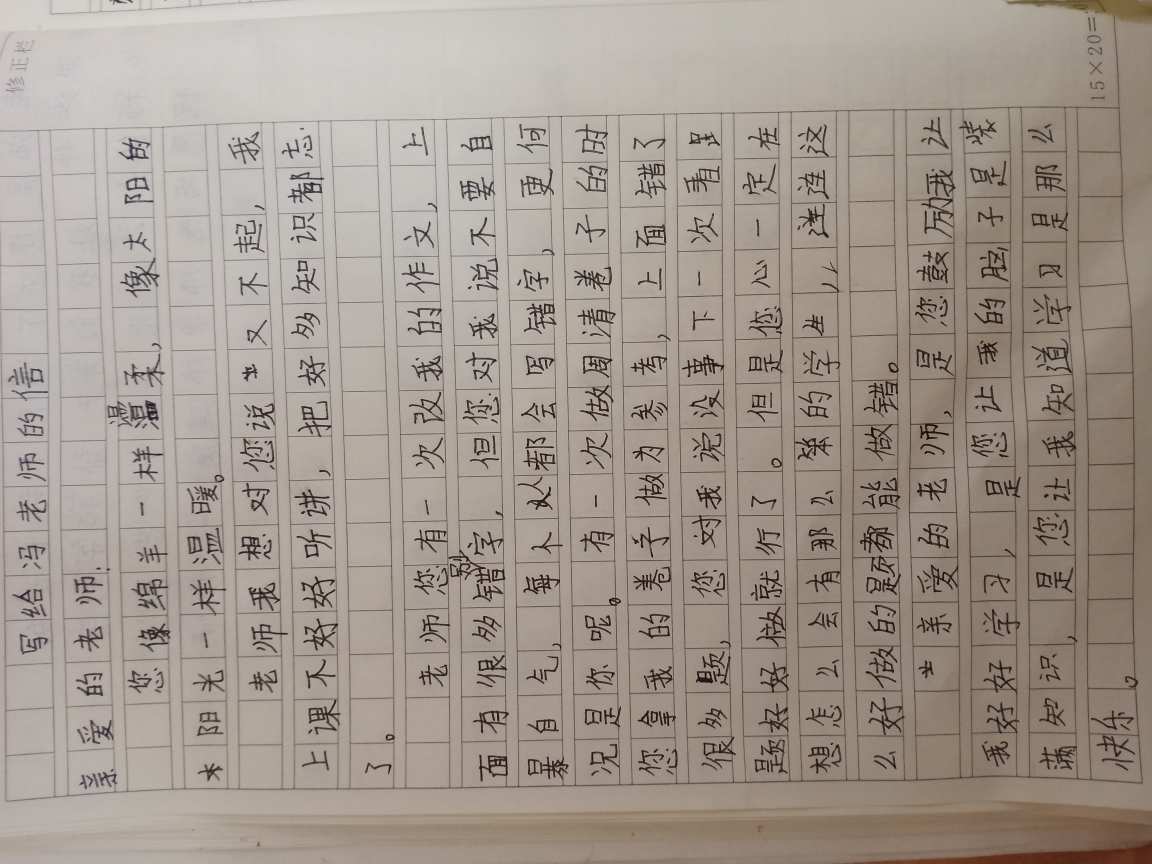 写给冯老师的信
亲爱的老师:
您像绵羊一样温柔,像太阳的
阳光一样温暖。
老师我想对您说“又不起,我
上课不好好听讲,把好多知识都忘
了。
老师您有一次改我的作文,上
面有很多错别字,但您对我说不要自
暴自气,每个人都会写错字,更何
况是你呢。有一次做周清卷子的时
您拿我的卷子做为参考,上面错了
很多题,您对我说没事下一次看里
题好好做就行了。但是您心一定在
想怎么会有那么笨的学生,连连这
么好做的题都能做错。
亲爱的老师,是您鼓励我让
我好好学习,是您让我的脑子是装
满知识,是您让我知道学习是那么
快乐。
15×20=
修正栏